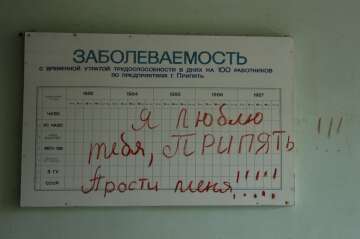 ЗАБОЛЕВАЕМОСТЬ
С ВРЕМЕННОЙ УТРАТОЙ ТРУДОСПОСОБНОСТИ В ДНЯХ НА 100 РАБОТНИКОВ
ПО ПРЕДПРИЯТИЯМ Г. ПРИПЯТЬ
1983 1984 1985 1986 1987
Я люблю
тебя, ПРИПЯТЬ !!!
Прости меня!!!!!!
СССР